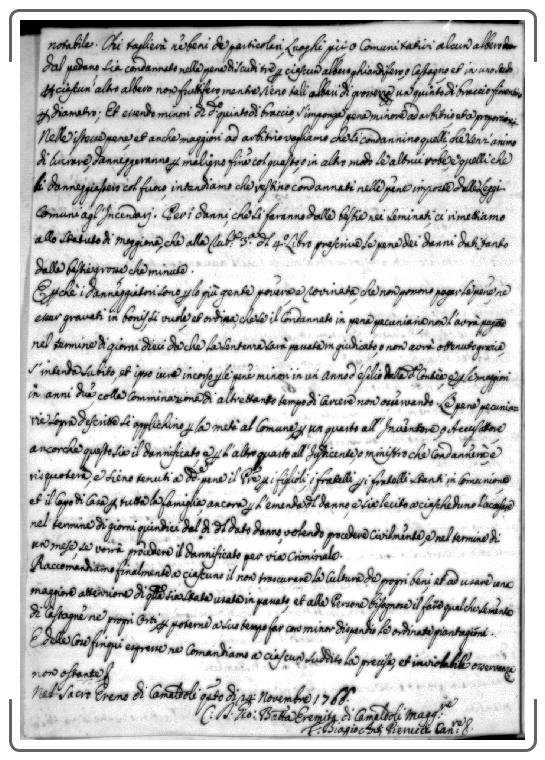 notabile. Chi taglierà ne beni de particolari, Luoghi pij o Comunitativi alcun albero
dal pedano sia condannato nelle pene di scudi tre ciascun albero ghiandifero o Castagno et in uno scudo
ciascun altro albero non fruttifero mentre sieno tali alberi di grossezza un quinto di braccio fiorentino
diametro; Et essendo minori di quinto di braccio s'impone pena minore ad arbitrio
Nelle istesse pene, et anche maggiori ad arbitrio vogliamo che si condannino quelli, che senz'animo
di lucrare, danneggeranno maligno fine col questo o in altro modo le altrui robe, e quelli che
danneggiassero col fuoco, intendiamo che restino condannati nelle pene imposte dalle Leggi
Comuni agl'Incendarj. Per i danni che si faranno dalle bestie nei seminati ci rimettiamo
allo Statuto di Moggiona, che alla Rub. 3.a del 4.o Libro prescrive le pene dei danni dati tanto
dalle bestie grosse che minute.
E perchè i danneggiatori sono per lo più gente povera e rovinata che non possono pagar le pene ne
esser gravati in beni si vuole et ordina che se il Condannato in pena pecuniaria non l'avrà pagata
nel termine di giorni dieci da che la sentenza sarà passata in giudicato, o non avrà ottenuto grazia,
s'intenda subito et ipso iure incorso per le pene minori in un Anno d'esilio dalla Contea, e per le maggiori
in anni due colla Comminazione di altrettanto tempo di Carcere non osservando. Le pene pecuniarie
sopra descritte si applichino per la metà al Comune per un quarto all'Inventore o Accusatore
ancorche questo sia il dannificato e per l'altro quarto all'Iusdicente o ministro che Condannerà e
risquoterà, e sieno tenuti a dette pene il Padre per i figlioli, i fratelli per i fratelli stanti in Comunione
et il Capo di Casa per tutta la famiglia ancora per l'emenda del danno, e sia lecito a ciascheduno l'accusare
nel termine di giorni quindici dal dì del dato danno volendo procedere Civilmente e nel termine di
un mese se vorrà procedere il dannificato per via Criminale.
Raccomandiamo finalmente a ciascuno il non trascurare la Cultura de proprj beni et ad usare una
maggiore attenzione di quella sia stata usata in passato, et alle Persone bisognose il fare qualche sementa
di Castagne ne proprj Orti per poterne a suo tempo far con minor dispendio le ordinate piantagioni.
E delle Cose finqui espresse ne Comandiamo a ciascun suddito la precisa, et inviolabile osservanza
non ostante
Nel Sacro Eremo di Camaldoli questo dì 24: Novembre 1766.
C. D. Gio: Batta Eremita di Camaldoli Magg.re
Biagio Ant. Canc.re